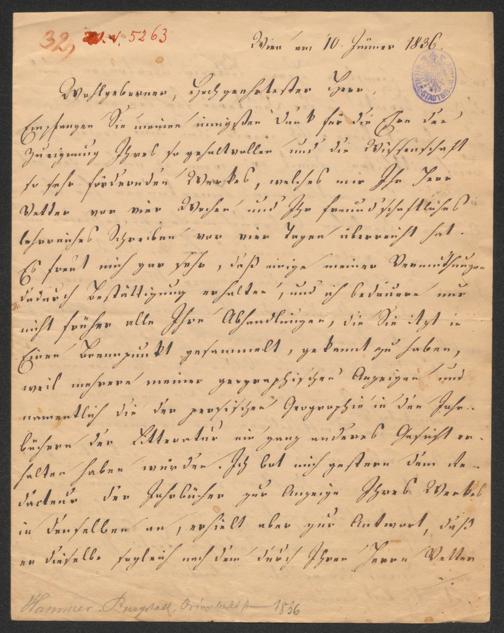 32, I. N. 5263
Wien am 10. Jänner 1836
Wohlgeborner, Hochgeehrtester Herr,
Empfangen Sie meinen innigsten Dank für die Ehre der
Zueignung Ihres so gehaltvollen und die Wissenschaft
so sehr fördernden Werkes, welches mir Ihr Herr
Vetter vor vier Wochen und Ihr freundschaftliches
lehrreiches Schreiben vor vier Tagen überreicht hat.
Es freut mich gar sehr, daß einige meiner Vermuthungen
dadurch Bestättigung erhalten, und ich bedauere nur
nicht früher alle Ihre Abhandlungen, die Sie itzt in
Einen Brennpunkt gesammelt, gekannt zu haben,
weil mehrere meiner geographischen Anzeigen und
namentlich die der persischen Geographie in den Jahr-
büchern der Litteratur ein ganz anderes Gesicht er-
halten haben würden. Ich bot mich gestern dem Re-
dacteur der Jahrbücher zur Anzeige Ihres Werkes
in denselben an, erhielt aber zur Antwort, daß
er dieselbe sogleich nach dem durch Ihren Herrn Vetter
Hammer-Purgstall, Orientalist 1836